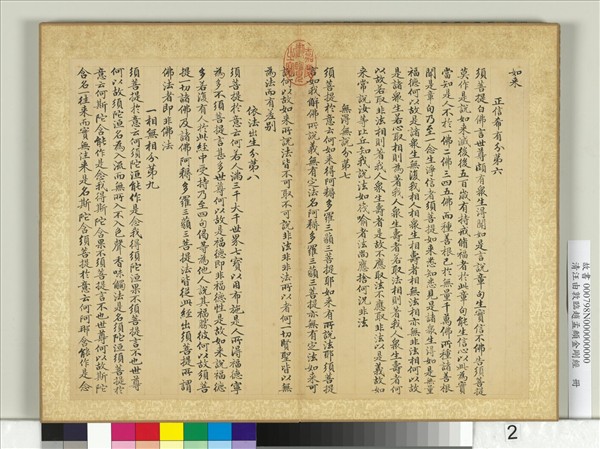 如来
正信希有分第六
須菩提白佛言世尊頗有衆生得聞如是言說章句生實信不佛告須菩提
莫作是說如来滅後後五百歲有持戒脩福者於此章句能生信心以此為實
當知是人不於一佛二佛三四五佛而種善根已於無量千萬佛所種諸善根
聞是章句乃至一念生淨信者須菩提如来悉知悉見是諸衆生得如是無量
福德何以故是諸衆生無復我相人相衆生相壽者相無法相亦無非法相何以故
是諸衆生若心取相則為著我人衆生壽者若取法相則著我人衆生壽者何
以故若取非法相則著我人衆生壽者是故不應取法不應取非法以是義故如
来常說汝等比丘知我說法如筏喻者法尚應捨何況非法
無得無說分第七
須菩提於意云何如来得阿耨多羅三藐三菩提耶如来有所說法耶須菩提
言如我解佛所說義無有定法名阿耨多羅三藐三菩提亦無有定法如来可
說何以故如来所說法皆不可取不可說非法非非法所以者何一切賢聖皆以無
為法而有差别
依法出生分第八
須菩提於意云何若人滿三千大千世界七寶以用布施是人所得福德寧
為多不須菩提言甚多世尊何以故是福德即非福德性是故如来說福德
多若復有人於此經中受持乃至四句偈等為他人說其福勝彼何以故須菩
提一切諸佛及諸佛阿耨多羅三藐三菩提法皆從此經出須菩提所謂
佛法者即非佛法
一相無相分第九
須菩提於意云何須陀洹能作是念我得須陀洹果不須菩提言不也世尊
何以故須陀洹名為入流而無所入不入色聲香味觸法是名須陀洹須菩提於
意云何斯陀含能作是念我得斯陀含果不須菩提言不也世尊何以故斯陀
含名一往来而實無往来是名斯陀含須菩提於意云何阿那含能作是念
故書 000798N000000000
清汪由敦臨趙孟頫金剛經 冊
2